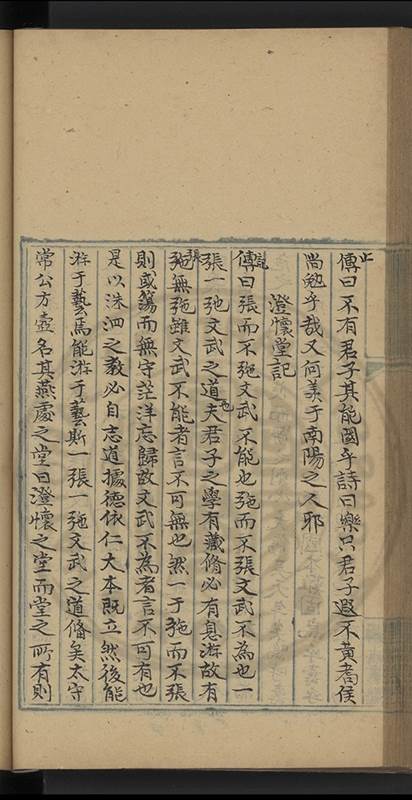 傳曰不有君子其能國乎詩曰樂只君子遐不黃耇侯
尚勉乎哉又何羡于南陽之人邪
澄懷堂記
傳曰張而不弛文武不能也弛而不張文武不為也一
張一弛文武之道也夫君子之學有藏脩必有息游故有
張無弛雖文武不能者言不可無也然一于弛而不張
則或蕩而無守茫洋忘歸故文武不為者言不可有也
是以洙泗之教必自志道據德依仁大本既立然後能
游于藝焉能游于藝斯一張一弛文武之道脩矣太守
常公方壺名其燕處之堂曰澄懷之堂而堂之所有則